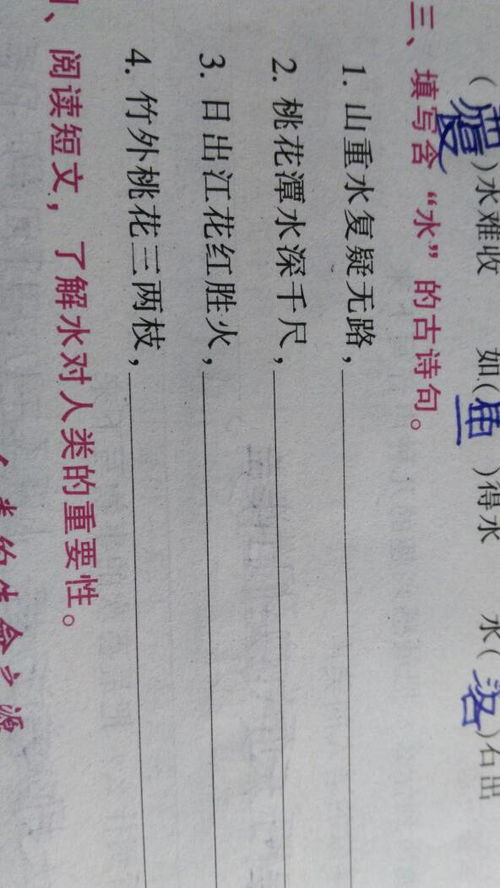 (覆)水难收 如(鱼)得水 水(落)石出
三、填写含“水”的古诗句。
1. 山重水复疑无路,
2. 桃花潭水深千尺,
3. 日出江花红胜火,
4. 竹外桃花三两枝,
、阅读短文,了解水对人类的重要性。
人类的生命之源